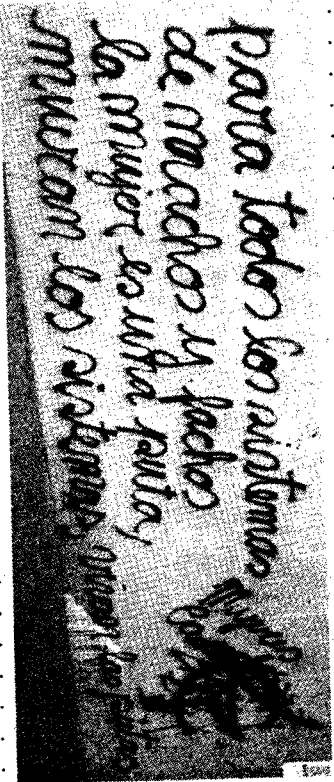 para todos los sistemas
de machos y fachos
la mujer es una puta,
mueran los sistemas, vivan las putas